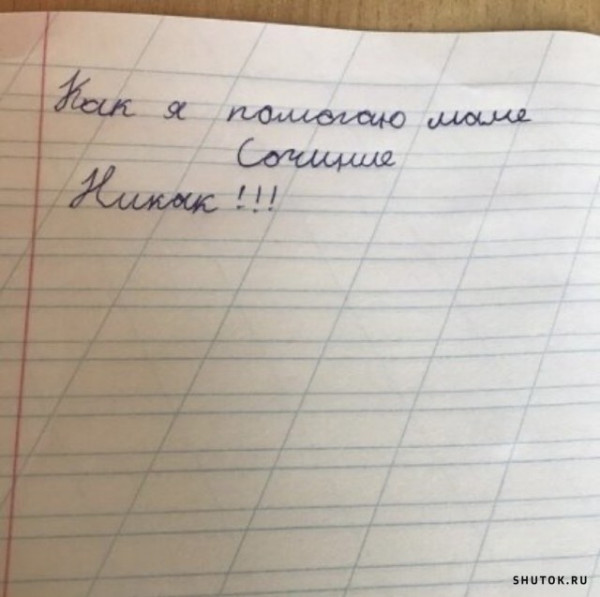 Как я помогаю маме
Сочиние
Никак!!!
SHUTOK.RU